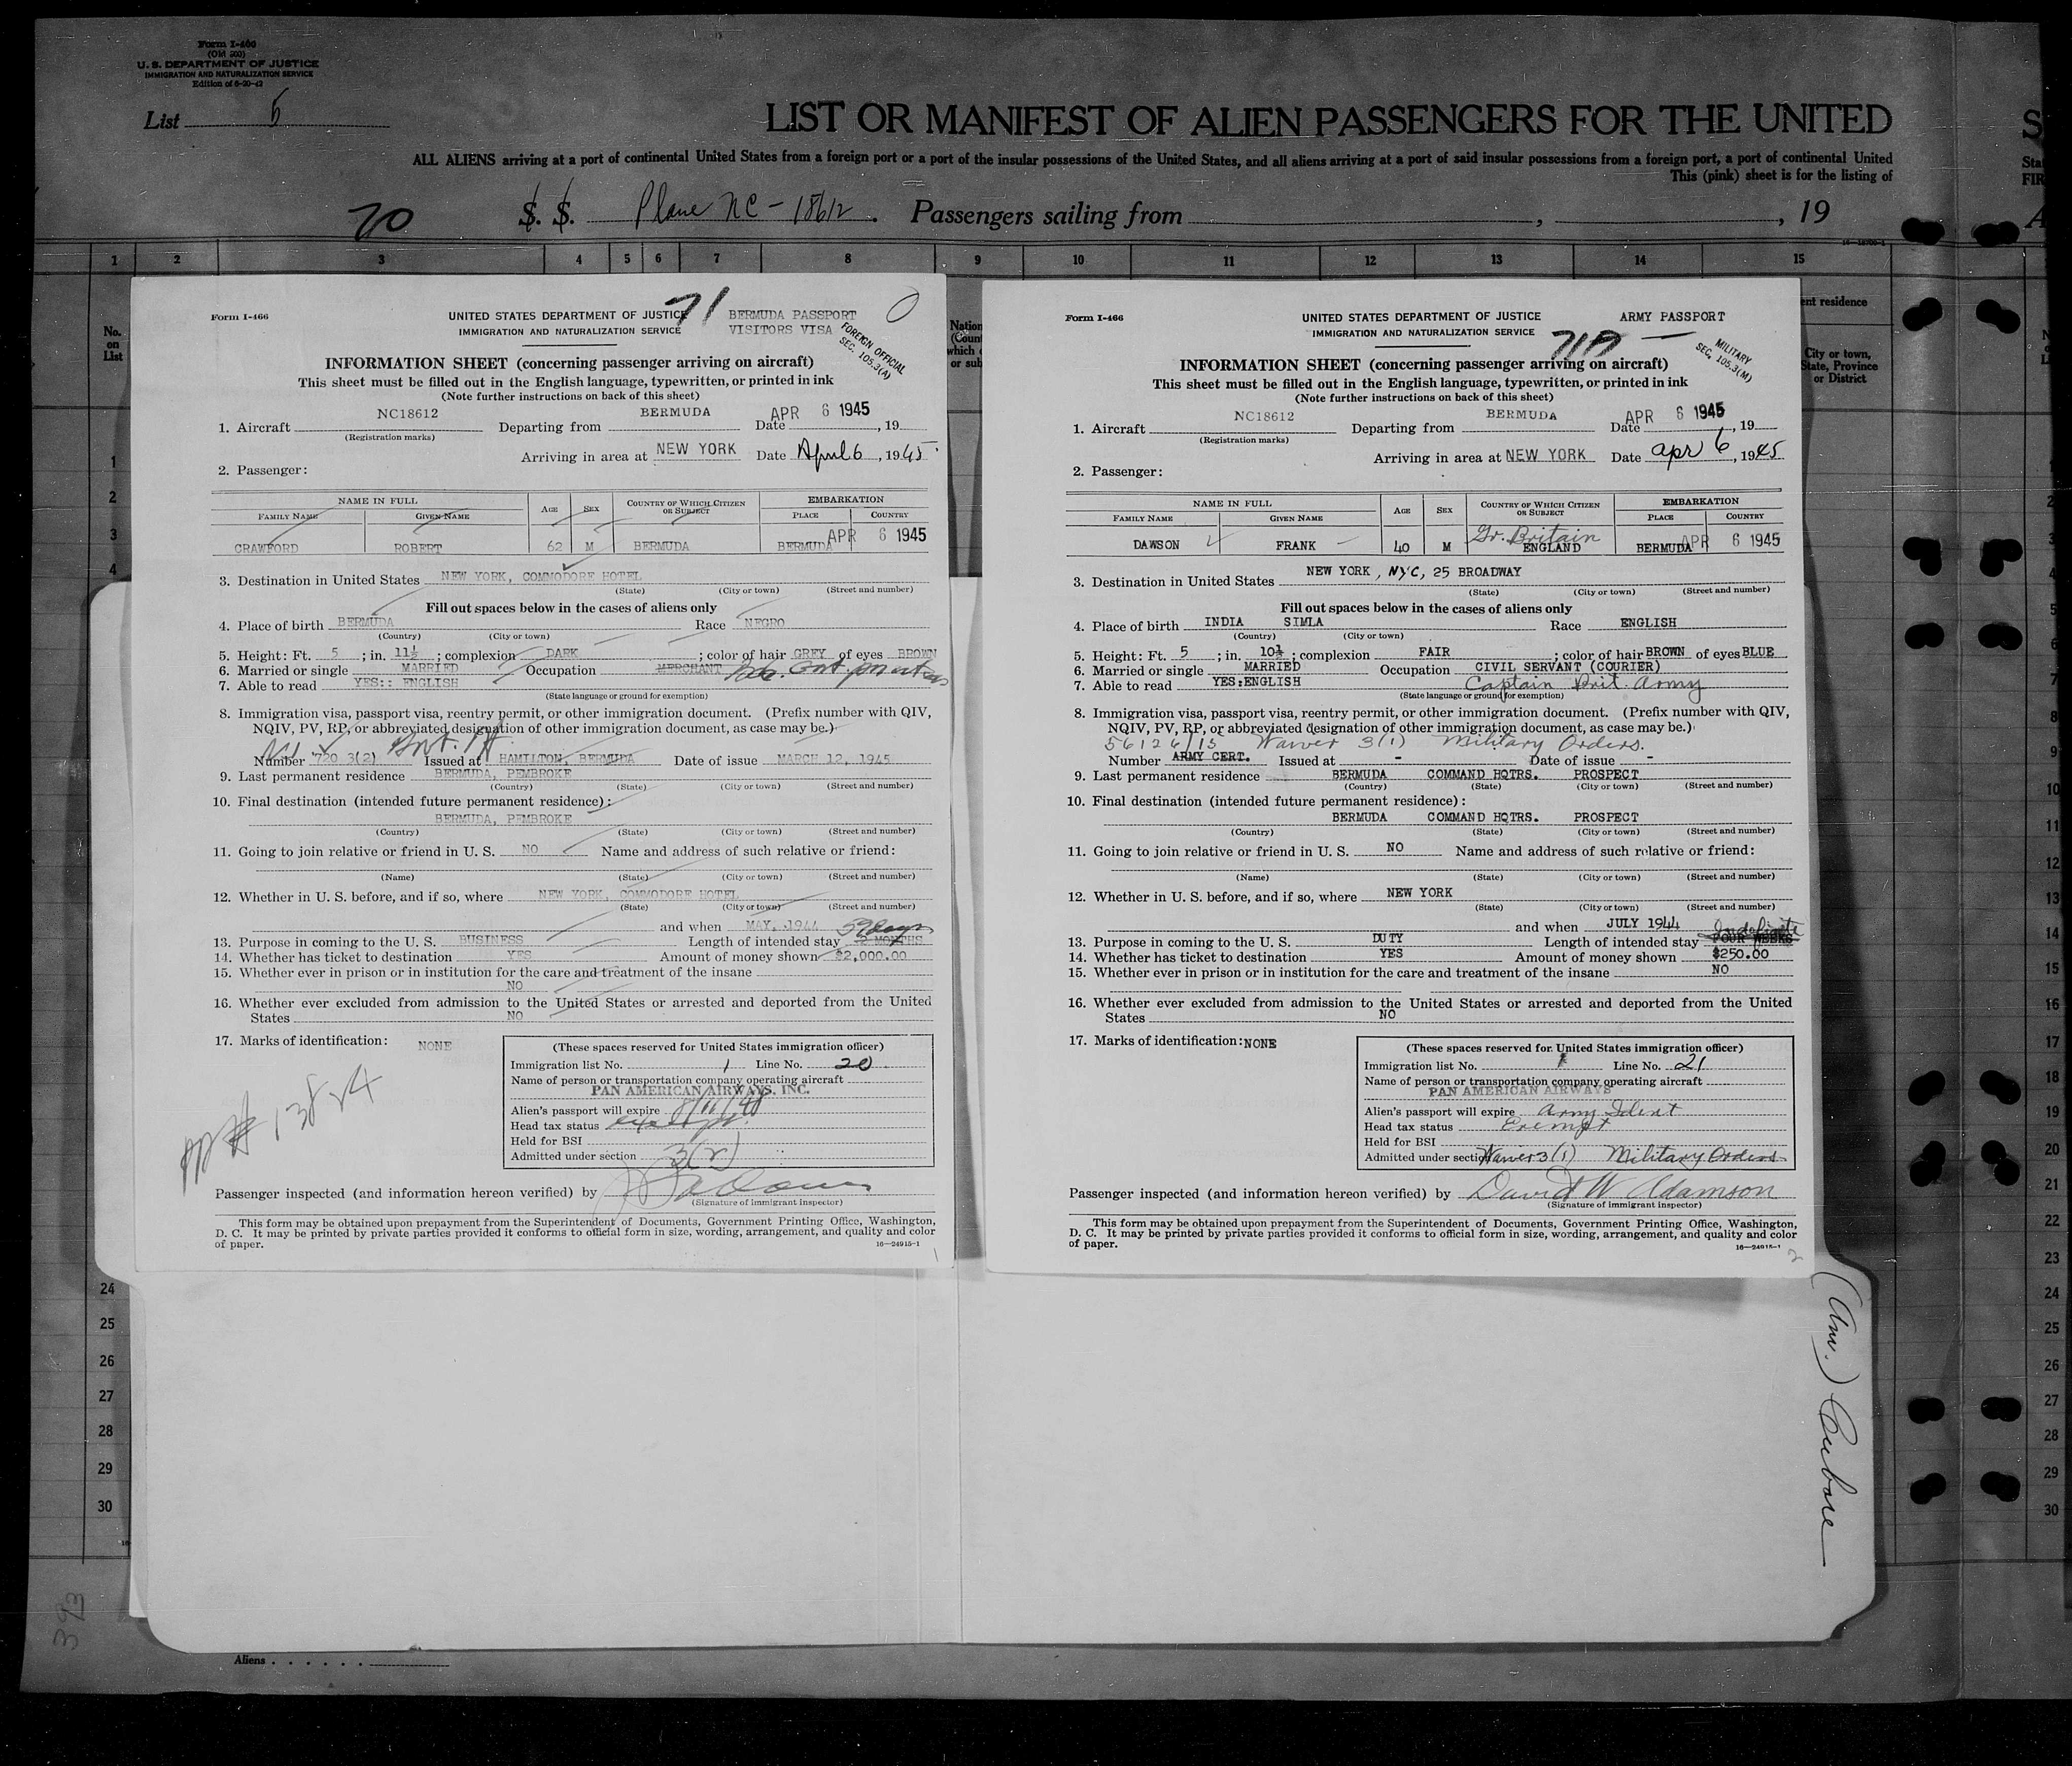 Form I-466
(Old 500)
U. S. DEPARTMENT OF JUSTICE
IMMIGRATION AND NATURALIZATION SERVICE
Edition of 6-20-42
List 5
LIST OR MANIFEST OF ALIEN PASSENGERS FOR THE UNITED
ALL ALIENS arriving at a port of continental United States from a foreign port or a port of the insular possessions of the United States, and all aliens arriving at a port of said insular possessions from a foreign port, a port of continental United
This (pink) sheet is for the listing of
70 S. S. Plane NC-18612. Passengers sailing from , , 19
1 2 3 4 5 6 7 8 9 10 11 12 13 14 15
No. on List
City or town, State, Province or District
Form I-466
UNITED STATES DEPARTMENT OF JUSTICE
71
BERMUDA PASSPORT
IMMIGRATION AND NATURALIZATION SERVICE
VISITORS VISA
FOREIGN OFFICIAL
SEC. 105.3(A)
INFORMATION SHEET (concerning passenger arriving on aircraft)
This sheet must be filled out in the English language, typewritten, or printed in ink
(Note further instructions on back of this sheet)
1. Aircraft NC18612 Departing from BERMUDA Date APR 6 1945, 19
(Registration marks)
Arriving in area at NEW YORK Date April 6, 1945
2. Passenger:
NAME IN FULL
FAMILY NAME GIVEN NAME AGE SEX COUNTRY OF WHICH CITIZEN OR SUBJECT EMBARKATION PLACE COUNTRY
CRAWFORD ROBERT 62 M BERMUDA BERMUDA APR 6 1945
3. Destination in United States NEW YORK, COMMODORE HOTEL
(State) (City or town) (Street and number)
Fill out spaces below in the cases of aliens only
4. Place of birth BERMUDA Race NEGRO
(Country) (City or town)
5. Height: Ft. 5 ; in. 11½ ; complexion DARK ; color of hair GREY of eyes BROWN
6. Married or single MARRIED Occupation MERCHANT
7. Able to read YES:: ENGLISH
(State language or ground for exemption)
8. Immigration visa, passport visa, reentry permit, or other immigration document. (Prefix number with QIV,
NQIV, PV, RP, or abbreviated designation of other immigration document, as case may be.)
Number 720 3(2) Issued at HAMILTON, BERMUDA Date of issue MARCH 12, 1945
9. Last permanent residence BERMUDA, PEMBROKE
(Country) (State) (City or town) (Street and number)
10. Final destination (intended future permanent residence):
BERMUDA, PEMBROKE
(Country) (State) (City or town) (Street and number)
11. Going to join relative or friend in U. S. NO Name and address of such relative or friend:
(Name) (State) (City or town) (Street and number)
12. Whether in U. S. before, and if so, where NEW YORK, COMMODORE HOTEL
(State) (City or town) (Street and number)
and when MAY, 1944
13. Purpose in coming to the U. S. BUSINESS Length of intended stay MONTHS
14. Whether has ticket to destination YES Amount of money shown $2,000.00
15. Whether ever in prison or in institution for the care and treatment of the insane
NO
16. Whether ever excluded from admission to the United States or arrested and deported from the United
States NO
17. Marks of identification: NONE
(These spaces reserved for United States immigration officer)
Immigration list No. 1 Line No. 20
Name of person or transportation company operating aircraft
PAN AMERICAN AIRWAYS, INC.
Alien's passport will expire 8/11/48
Head tax status exempt
Held for BSI
Admitted under section 3(2)
Passenger inspected (and information hereon verified) by
(Signature of immigrant inspector)
This form may be obtained upon prepayment from the Superintendent of Documents, Government Printing Office, Washington,
D. C. It may be printed by private parties provided it conforms to official form in size, wording, arrangement, and quality and color
of paper.
16—24915-1
1
Form I-466
UNITED STATES DEPARTMENT OF JUSTICE
ARMY PASSPORT
IMMIGRATION AND NATURALIZATION SERVICE
MILITARY
SEC. 105.3(M)
INFORMATION SHEET (concerning passenger arriving on aircraft)
This sheet must be filled out in the English language, typewritten, or printed in ink
(Note further instructions on back of this sheet)
1. Aircraft NC18612 Departing from BERMUDA Date APR 6 1945, 19
(Registration marks)
Arriving in area at NEW YORK Date Apr 6, 1945
2. Passenger:
NAME IN FULL
FAMILY NAME GIVEN NAME AGE SEX COUNTRY OF WHICH CITIZEN OR SUBJECT EMBARKATION PLACE COUNTRY
Gr. Britain
DAWSON FRANK 40 M ENGLAND BERMUDA APR 6 1945
3. Destination in United States NEW YORK, NYC, 25 BROADWAY
(State) (City or town) (Street and number)
Fill out spaces below in the cases of aliens only
4. Place of birth INDIA SIMLA Race ENGLISH
(Country) (City or town)
5. Height: Ft. 5 ; in. 10½ ; complexion FAIR ; color of hair BROWN of eyes BLUE
6. Married or single MARRIED Occupation CIVIL SERVANT (COURIER)
7. Able to read YES:ENGLISH Captain Brit. Army
(State language or ground for exemption)
8. Immigration visa, passport visa, reentry permit, or other immigration document. (Prefix number with QIV,
NQIV, PV, RP, or abbreviated designation of other immigration document, as case may be.)
56126/15 Waiver 3(1) Military Orders.
Number ARMY CERT. Issued at - Date of issue -
9. Last permanent residence BERMUDA COMMAND HQTRS. PROSPECT
(Country) (State) (City or town) (Street and number)
10. Final destination (intended future permanent residence):
BERMUDA COMMAND HQTRS. PROSPECT
(Country) (State) (City or town) (Street and number)
11. Going to join relative or friend in U. S. NO Name and address of such relative or friend:
(Name) (State) (City or town) (Street and number)
12. Whether in U. S. before, and if so, where NEW YORK
(State) (City or town) (Street and number)
and when JULY 1944
Indefinite
13. Purpose in coming to the U. S. DUTY Length of intended stay FOUR WEEKS
14. Whether has ticket to destination YES Amount of money shown $250.00
15. Whether ever in prison or in institution for the care and treatment of the insane NO
16. Whether ever excluded from admission to the United States or arrested and deported from the United
States NO
17. Marks of identification: NONE
(These spaces reserved for United States immigration officer)
Immigration list No. 1 Line No. 21
Name of person or transportation company operating aircraft
PAN AMERICAN AIRWAYS
Alien's passport will expire Army Ident
Head tax status Exempt
Held for BSI
Admitted under section Waiver 3(1) Military Orders
Passenger inspected (and information hereon verified) by David W Adamson
(Signature of immigrant inspector)
This form may be obtained upon prepayment from the Superintendent of Documents, Government Printing Office, Washington,
D. C. It may be printed by private parties provided it conforms to official form in size, wording, arrangement, and quality and color
of paper.
16—24915-1
2
24
25
26
27
28
29
30
393
Aliens